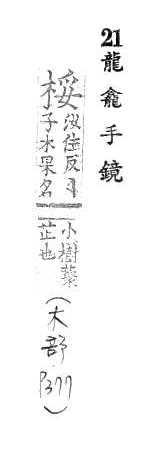 21 龍龕手鏡
桵
汝佳反
子木果名
小樹藂
芷也
(木部 P377)